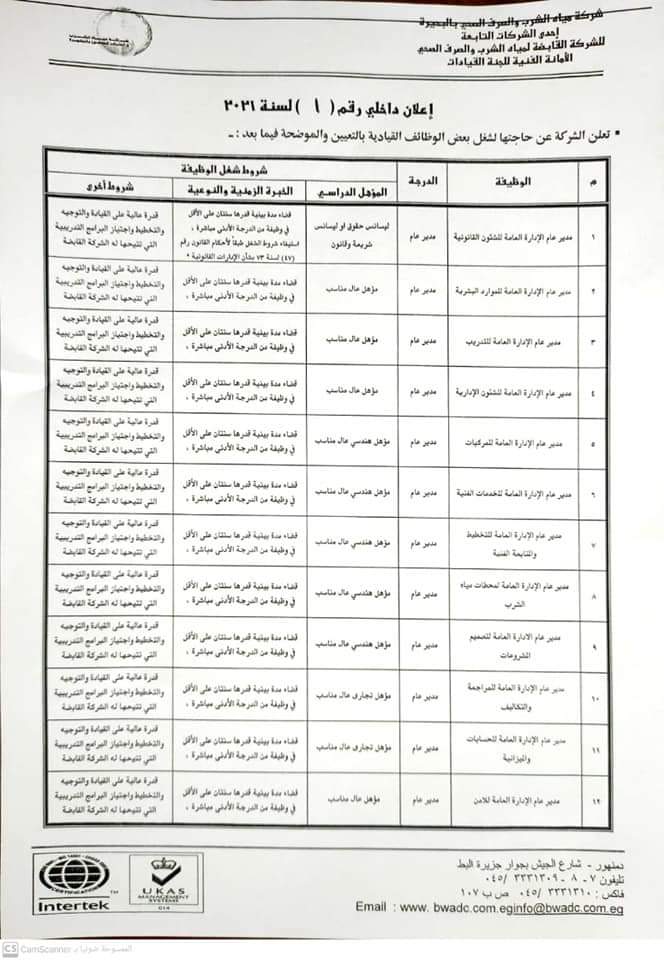 شركة مياه الشرب والصرف الصحي بالبحيرة
إحدى الشركات التابعة
للشركة القابضة لمياه الشرب والصرف الصحي
الأمانة الفنية للجنة القيادات
إعلان داخلي رقم ( ١ ) لسنة ٢٠٢١
• تعلن الشركة عن حاجتها لشغل بعض الوظائف القيادية بالتعيين والموضحة فيما بعد : ــ
م الوظيفة الدرجة شروط شغل الوظيفة
المؤهل الدراسي الخبرة الزمنية والنوعية شروط أخرى
١ مدير عام الإدارة العامة للشئون القانونية مدير عام ليسانس حقوق او ليسانس شريعة وقانون قضاء مدة بينية قدرها سنتان على الأقل في وظيفة من الدرجة الأدنى مباشرة ، استيفاء شروط الشغل طبقاً لأحكام القانون رقم (٤٧) لسنة ٧٣ بشأن الإدارات القانونية • قدرة عالية على القيادة والتوجيه والتخطيط واجتياز البرامج التدريبية التي تتيحها له الشركة القابضة
٢ مدير عام الإدارة العامة للموارد البشرية مدير عام مؤهل عال مناسب قضاء مدة بينية قدرها سنتان على الأقل في وظيفة من الدرجة الأدنى مباشرة ، قدرة عالية على القيادة والتوجيه والتخطيط واجتياز البرامج التدريبية التي تتيحها له الشركة القابضة
٣ مدير عام الإدارة العامة للتدريب مدير عام مؤهل عال مناسب قضاء مدة بينية قدرها سنتان على الأقل في وظيفة من الدرجة الأدنى مباشرة ، قدرة عالية على القيادة والتوجيه والتخطيط واجتياز البرامج التدريبية التي تتيحها له الشركة القابضة
٤ مدير عام الإدارة العامة للشئون الإدارية مدير عام مؤهل عال مناسب قضاء مدة بينية قدرها سنتان على الأقل في وظيفة من الدرجة الأدنى مباشرة ، قدرة عالية على القيادة والتوجيه والتخطيط واجتياز البرامج التدريبية التي تتيحها له الشركة القابضة
٥ مدير عام الإدارة العامة للمركبات مدير عام مؤهل هندسي عال مناسب قضاء مدة بينية قدرها سنتان على الأقل في وظيفة من الدرجة الأدنى مباشرة ، قدرة عالية على القيادة والتوجيه والتخطيط واجتياز البرامج التدريبية التي تتيحها له الشركة القابضة
٦ مدير عام الإدارة العامة للخدمات الفنية مدير عام مؤهل هندسي عال مناسب قضاء مدة بينية قدرها سنتان على الأقل في وظيفة من الدرجة الأدنى مباشرة ، قدرة عالية على القيادة والتوجيه والتخطيط واجتياز البرامج التدريبية التي تتيحها له الشركة القابضة
٧ مدير عام الإدارة العامة للتخطيط والمتابعة الفنية مدير عام مؤهل هندسي عال مناسب قضاء مدة بينية قدرها سنتان على الأقل في وظيفة من الدرجة الأدنى مباشرة ، قدرة عالية على القيادة والتوجيه والتخطيط واجتياز البرامج التدريبية التي تتيحها له الشركة القابضة
٨ مدير عام الإدارة العامة لمحطات مياه الشرب مدير عام مؤهل هندسي عال مناسب قضاء مدة بينية قدرها سنتان على الأقل في وظيفة من الدرجة الأدنى مباشرة ، قدرة عالية على القيادة والتوجيه والتخطيط واجتياز البرامج التدريبية التي تتيحها له الشركة القابضة
٩ مدير عام الادارة العامة لتصميم المشروعات مدير عام مؤهل هندسي عال مناسب قضاء مدة بينية قدرها سنتان على الأقل في وظيفة من الدرجة الأدنى مباشرة ، قدرة عالية على القيادة والتوجيه والتخطيط واجتياز البرامج التدريبية التي تتيحها له الشركة القابضة
١٠ مدير عام الإدارة العامة للمراجعة والتكاليف مدير عام مؤهل تجارى عال مناسب قضاء مدة بينية قدرها سنتان على الأقل في وظيفة من الدرجة الأدنى مباشرة ، قدرة عالية على القيادة والتوجيه والتخطيط واجتياز البرامج التدريبية التي تتيحها له الشركة القابضة
١١ مدير عام الإدارة العامة للحسابات والميزانية مدير عام مؤهل تجارى عال مناسب قضاء مدة بينية قدرها سنتان على الأقل في وظيفة من الدرجة الأدنى مباشرة ، قدرة عالية على القيادة والتوجيه والتخطيط واجتياز البرامج التدريبية التي تتيحها له الشركة القابضة
١٢ مدير عام الإدارة العامة للامن مدير عام مؤهل عال مناسب قضاء مدة بينية قدرها سنتان على الأقل في وظيفة من الدرجة الأدنى مباشرة ، قدرة عالية على القيادة والتوجيه والتخطيط واجتياز البرامج التدريبية التي تتيحها له الشركة القابضة
دمنهور - شارع الجيش بجوار جزيرة البط
تليفون ٧ - ٨ - ٣٣٣١٣٠٩ /٠٤٥
فاكس : ٣٣٣١٣١٠ /٠٤٥ ص ب ١٠٧
Email : www. bwadc.com.eginfo@bwadc.com.eg
Intertek
TM
UKAS
MANAGEMENT
SYSTEMS
014
CS CamScanner الممسوحة ضوئيا بـ